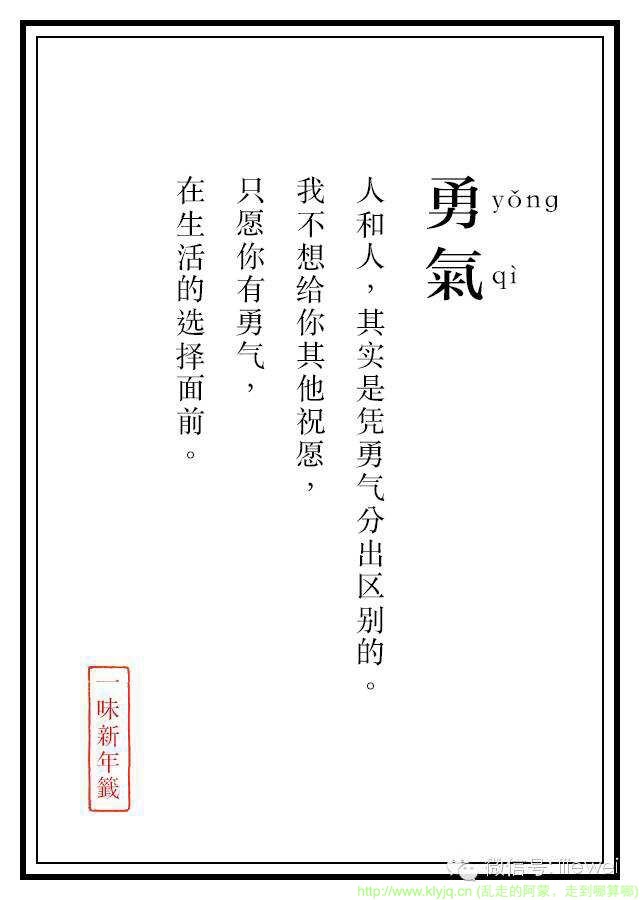 勇氣
yǒng
qì
人和人，其实是凭勇气分出区别的。
我不想给你其他祝愿，
只愿你有勇气，
在生活的选择面前。
一味新年籤
微信号:
http://www.klyjq.cn (乱走的阿蒙，走到哪算哪)